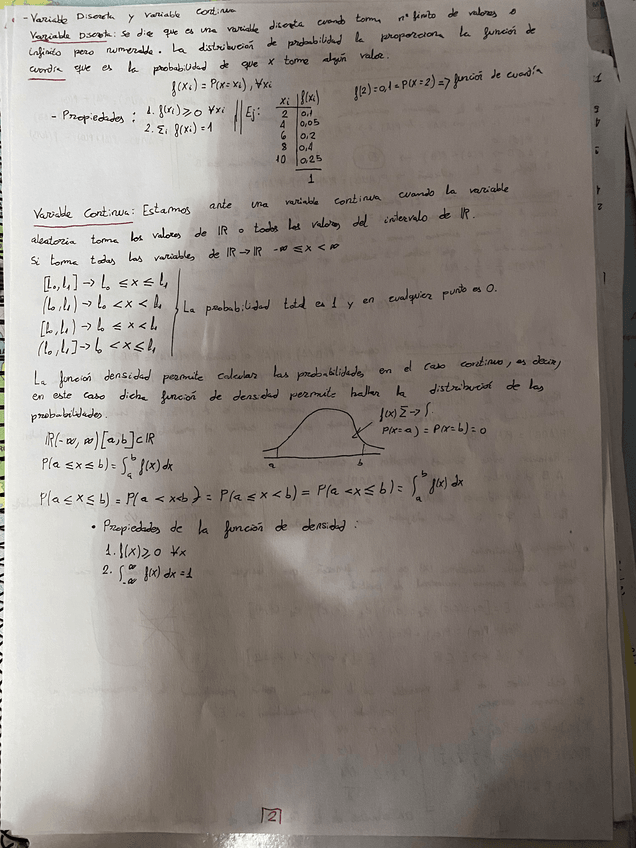 - Variable Discreta y variable continua
Variable Discreta: Se dice que es una variable discreta cuando toma nº finito de valores o
infinito pero numerable. La distribución de probabilidad la proporciona la función de
cuordía que es la probabilidad de que x tome algún valor.
f(xi) = P(x=xi), ∀xi
f(2)=0,1=P(x=2) => función de cuordía
- Propiedades: 1. f(xi) ≥ 0 ∀xi
2. Σi f(xi) = 1
Ej: xi f(xi)
2 0,1
4 0,05
6 0,2
8 0,4
10 0,25
1
Variable Continua: Estamos ante una variable continua cuando la variable
aleatoria toma los valores de IR o todos los valores del intervalo de IR.
Si toma todas las variables de IR → IR -∞ ≤ x < ∞
[L0, L1] → L0 ≤ x ≤ L1
(L0, L1) → L0 < x < L1
[L0, L1) → L0 ≤ x < L1
(L0, L1] → L0 < x ≤ L1
La probabilidad total es 1 y en cualquier punto es 0.
La función densidad permite calcular las probabilidades en el caso continuo, es decir,
en este caso dicha función de densidad permite hallar la distribución de las
probabilidades.
f(x) Σ → ∫.
P(x=a) = P(x=b) = 0
a b
IR(-∞, ∞) [a,b] ⊂ IR
P(a ≤ x ≤ b) = ∫ₐᵇ f(x) dx
P(a ≤ x ≤ b) = P(a < x < b) = P(a ≤ x < b) = P(a < x ≤ b) = ∫ₐᵇ f(x) dx
• Propiedades de la función de densidad:
1. f(x) ≥ 0 ∀x
2. ∫₋∞^∞ f(x) dx = 1
2